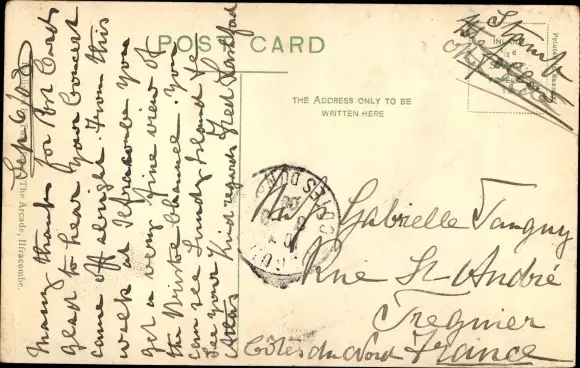 POST CARD
THE ADDRESS ONLY TO BE
WRITTEN HERE
Stamp
Sep 6.
Many thanks for Post Cards
glad to hear your Concert
came off alright. From this
walk at Ilfracombe you
get a very fine view of
the Bristol Channel. You
can see Lundy Island
see your
Atlas Kind regards Fred
The Arcade, Ilfracombe.
Gabrielle Tanguy
Rue St André
Treguier
Côtes du Nord France